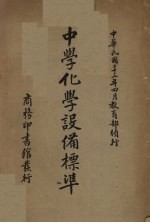 中華民國廿三年四月教育部頒行
中學化學設備標準
商務印書館發行